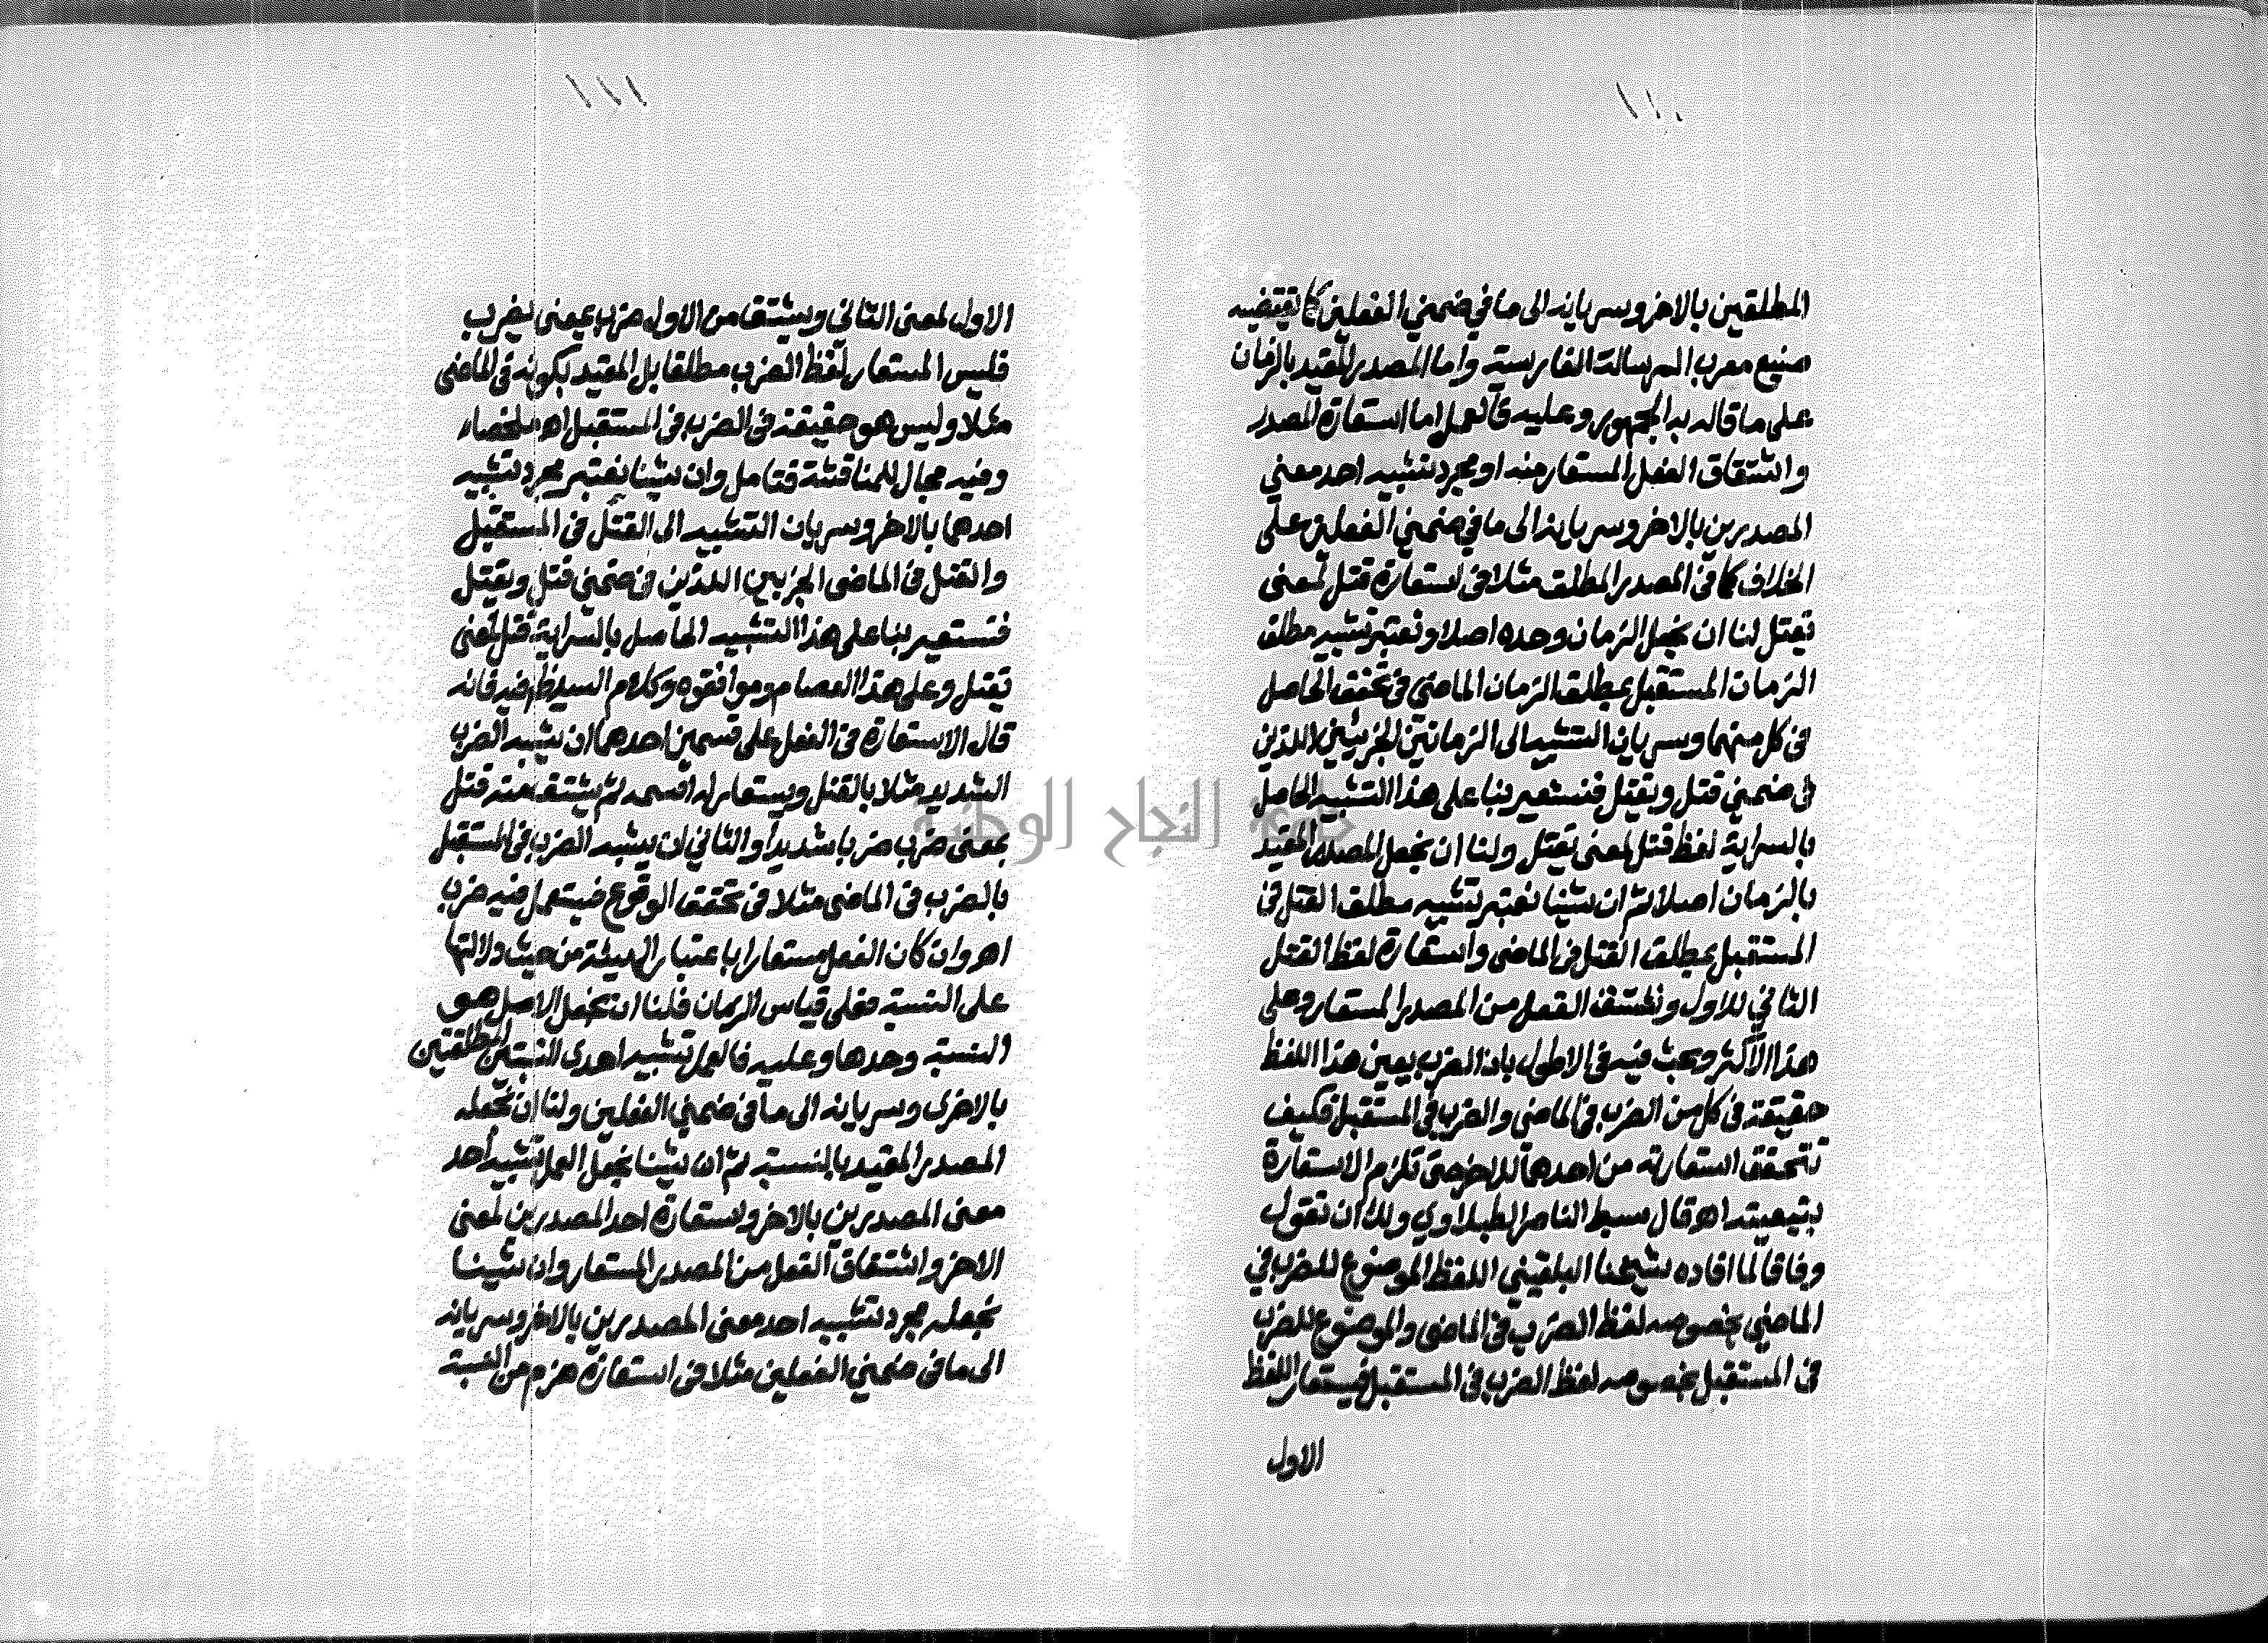 ١١٠
المطلقين بالاخر وسريانه الى ما في ضمني الفعلين كما تقتضيه
صنيع معرب الرسالة الفارسية واما المصدر المقيد بالزمان
على ما قاله به الجمهور وعليه فالعمل اما استعارة المصدر
واشتقاق الفعل المستعار منه او مجرد تشبيه احد معنى
المصدرين بالاخر وسريانه الى ما في ضمني الفعلين على
الخلاف كما في المصدر المطلق مثلا في استعارة قتل لمعنى
تقتل لنا ان نجعل الزمان وحده اصلا ونعتبر تشبيه مطلق
الزمان المستقبل بمطلق الزمان الماضي في تحقق الحاصل
في كل منهما وسريان التشبيه الى الزمانين الجزئيين اللذين
في ضمني قتل ويقتل فنستعير بنا على هذا التشبيه الحاصل
بالسراية لفظ قتل لمعنى تقتل ولنا ان نجعل المصدر المقيد
بالزمان اصلا ثم ان شينا نعتبر تشبيه مطلق القتل في
المستقبل بمطلق القتل في الماضي واستعارة لفظ القتل
الثاني للاول ونشتق الفعل من المصدر المستعار وعلى
هذا الاكثر وبحث فيه في الاطول بان الضرب بعين هذا اللفظ
حقيقة في كل من الضرب في الماضي والضرب في المستقبل فكيف
تتحقق استعارته من احدهما للاخر حتى تلزم الاستعارة
بتبعيته اهـ قال سبط الناصر الطبلاوي ولك ان تقول
وفاقا لما افاده شيخنا البلقيني اللفظ الموضوع للضرب في
الماضي بخصوصه لفظ الضرب في الماضي والموضوع للضرب
في المستقبل بخصوصه لفظ الضرب في المستقبل فيستعار اللفظ
الاول
١١١
الاول لمعنى الثاني ويشتق من الاول ضرب بمعنى يضرب
فليس المستعار لفظ الضرب مطلقا بل المقيد بكونه في الماضي
مثلا وليس هو حقيقة في الضرب في المستقبل اهـ ملخصا
وفيه مجال للمناقشة فتامل وان شينا نعتبر مجرد تشبيه
احدهما بالاخر وسريان التشبيه الى القتل في المستقبل
والقتل في الماضي الجزيين اللذين في ضمني قتل ويقتل
فنستعير بنا على هذا التشبيه الحاصل بالسراية قتل لمعنى
تقتل وعلى هذا العصام وموافقوه وكلام السيد ظاهر فيه فانه
قال الاستعارة في الفعل على قسمين احدهما ان يشبه الضرب
الشديد مثلا بالقتل ويستعار له اسمه ثم يشتق منه قتل
بمعنى ضرب ضربا شديدا والثاني ان يشبه الضرب في المستقبل
بالضرب في الماضي مثلا في تحقق الوقوع فيستعمل فيه ضرب
اهـ وان كان الفعل مستعارا باعتبار الهيئة من حيث دلالتها
على النسبة فعلى قياس الزمان فلنا ان نجعل الاصل هو
النسبة وحدها وعليه فالعمل تشبيه احدى النسبتين المطلقتين
بالاخرى وسريانه الى ما في ضمني الفعلين ولنا ان نجعله
المصدر المقيد بالنسبة ثم ان شينا نجعل العمل تشبيه احد
معنى المصدرين بالاخر واستعارة احد المصدرين لمعنى
الاخر واشتقاق الفعل من المصدر المستعار وان شينا
نجعله مجرد تشبيه احد معنى المصدرين بالاخر وسريانه
الى ما في ضمني الفعلين مثلا في استعارة هزم من النسبة
جامعة النجاح الوطنية